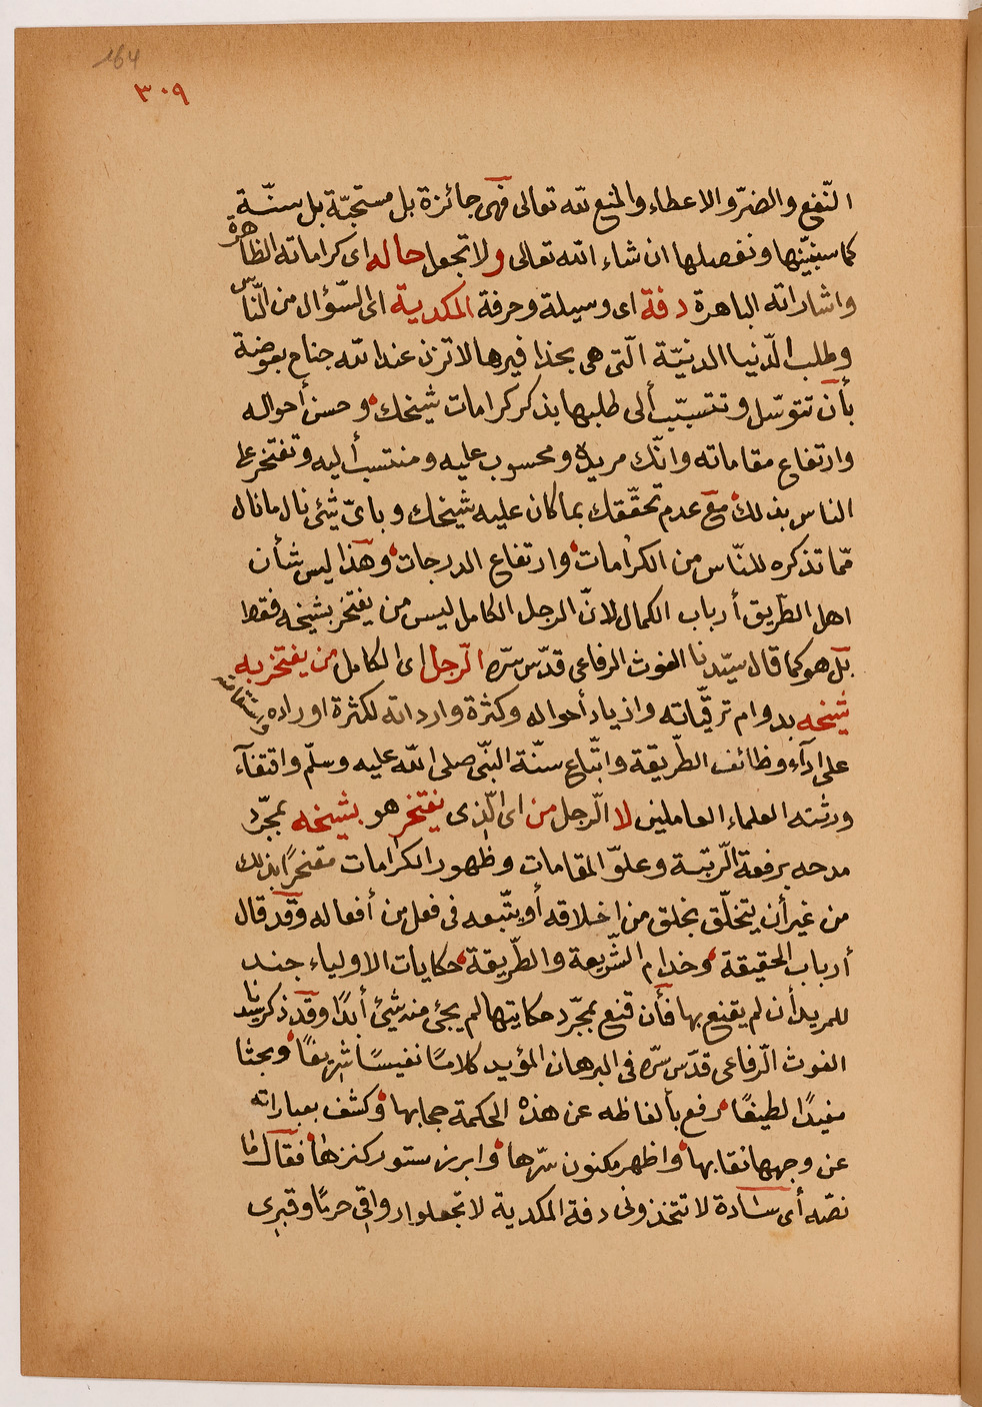 164
٣٠٩
النّفع والضرّ والاعطاء والمنع لله تعالى فهى جائزة بل مستحبّة بل سنّة
كما سنبيّنها ونفصلها ان شاء الله تعالى ولا تجعل حاله اى كراماته الظاهرة
واشاراته الباهرة دفة اى وسيلة وحرفة المكدية اى السّؤال من النّاس
وطلب الدّنيا الدنيّة الّتى هى بحذافيرها لا تزن عند الله جناح بعوضة
بأن تتوسّل وتتسبّب ألى طلبها بذكر كرامات شيخك وحسن أحواله
وارتفاع مقاماته وانّك مريده ومحسوب عليه ومنتسب أليه وتفتخر على
الناس بذلك مع عدم تحقّقك بما كان عليه شيخك وباىّ شئ نال ما نال
ممّا تذكره للنّاس من الكرامات وارتفاع الدرجات وهذا ليس شأن
اهل الطّريق أرباب الكمال لانّ الرجل الكامل ليس من يفتخر بشيخه فقط
بل هو كما قال سيّدنا الغوث الرفاعى قدّس سرّه الرّجل اى الكامل من يفتخر به
شيخه بدوام ترقّياته وازدياد أحواله وكثرة وارداته لكثرة اوراده واستقامته
على ادآء وظائف الطّريقة واتّباع سنّة النبّى صلى الله عليه وسلّم واقتفآء
ورثته العلماء العاملين لا الرّجل من اى الّذى يفتخر هو بشيخه بمجرّد
مدحه برفعة الرّتبة وعلوّ المقامات وظهور الكرامات مفتخرًا بذلك
من غير أن يتخلّق بخلق من اخلاقه أو يتّبعه فى فعل من أفعاله وقد قال
أرباب الحقيقة وخدام الشّريعة والطّريقة حكايات الاولياء جند
للمريد أن لم يقنع بها فأن قنع بمجرّد حكايتها لم يجئ منه شئ أبدًا وقد ذكر سيّدنا
الغوث الرّفاعى قدّس سرّه فى البرهان المؤيد كلامًا نفيسًا شريفًا وبحثا
مفيدًا لطيفًا رفع بألفاظه عن هذه الحكمة حجابها وكشف بعباراته
عن وجهها نقابها واظهر مكنون سرّها وابرز مستور كنزها فقال ما
نصّه أى سادة لا تتخذونى دفة المكدية لا تجعلوا رواقى حرمًا وقبرى